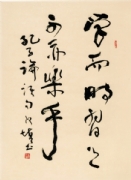 学而時習之
不亦樂乎
孔子論語句